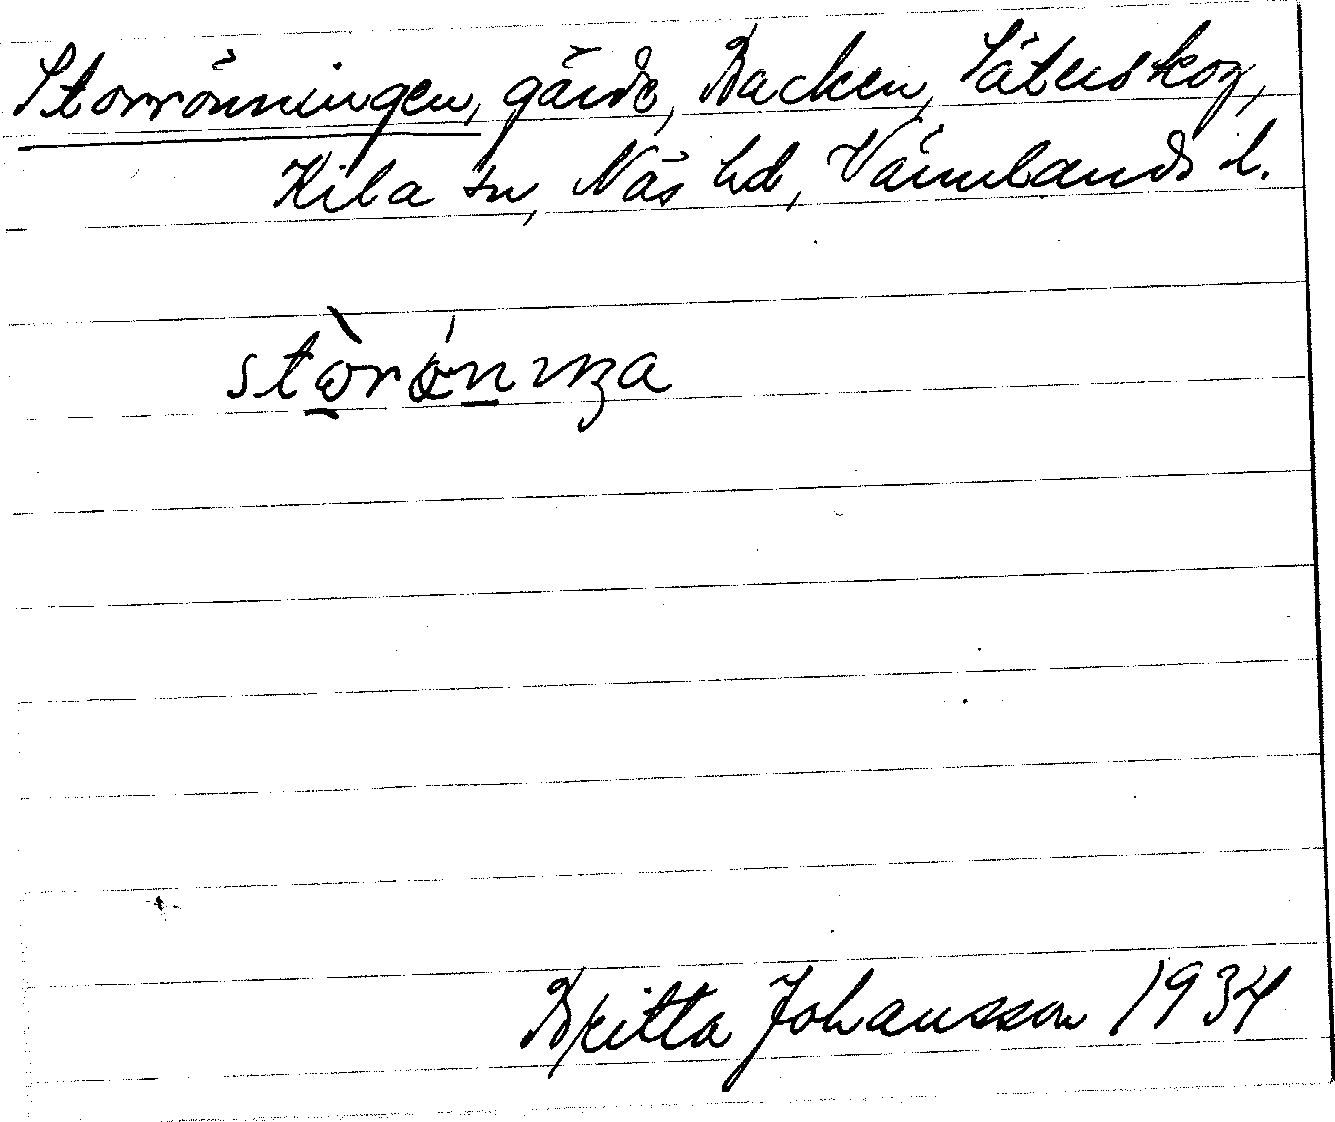 Storrönningen, gärde, Backen, Säterskog,
Kila sn, Näs hd, Värmlands l.
Britta Johansson 1934